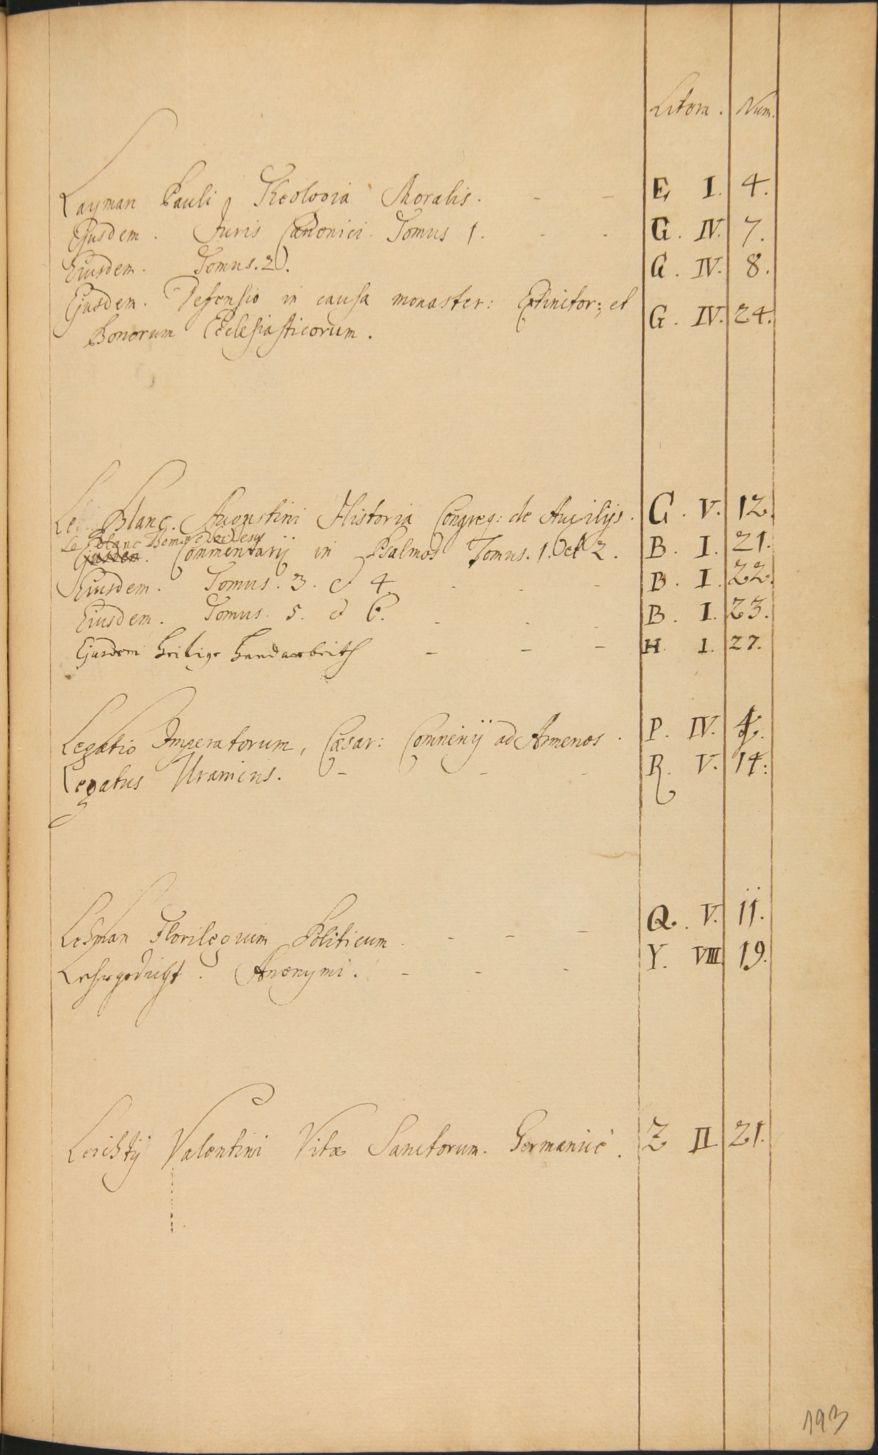 Litera. Num.
Layman Pauli Theologia Moralis. - - E I. 4.
Ejusdem. Juris Canonici Tomus 1. - - G. IV. 7.
Eiusdem. Tomus. 2. G. IV. 8.
Ejusdem. Defensio in causa monaster: Extinctor; et G. IV. 24.
Bonorum Ecclesiasticorum.
Le Blanc. Augustini Historia Congreg: de Auxilijs. G. V. 12.
Le Blanc
Commentarij in Psalmos Tomus. 1. et 2. B. I. 21.
Eiusdem. Tomus. 3. et 4. - - - B. I. 22.
Eiusdem. Tomus. 5. et 6. - - - B. I. 23.
Ejusdem heilige handarbeith - - - H 1. 27.
Legatio Imperatorum, Cæsar: Comnenij ad Armenos. P. IV.
Legatus Uranicus. - - - R. V. 14.
Lehman Florilegium Politicum - - - Q. V. 11.
Lehrgedicht. Anonymi. - - - Y. VIII 19.
Leichtij Valentini Vitæ Sanctorum. Germanicè. Z II 21.
193